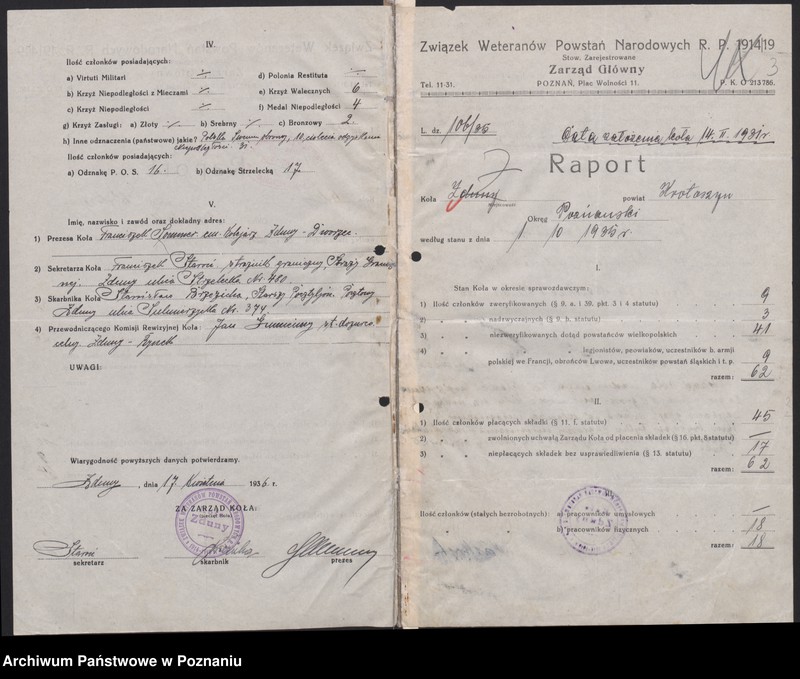 IV.
Ilość członków posiadających:
a) Virtuti Militari
d) Polonia Restituta
b) Krzyż Niepodległości z Mieczami
e) Krzyż Walecznych 6
c) Krzyż Niepodległości
f) Medal Niepodległości 4
g) Krzyż Zasługi: a) Złoty b) Srebrny c) Bronzowy 2
h) Inne odznaczenia (państwowe) jakie?
Ilość członków posiadających:
a) Odznakę P. O. S. 16. b) Odznakę Strzelecką 17
V.
Imię, nazwisko i zawód oraz dokładny adres:
1) Prezesa Koła Franciszek Sommer em. Kolejarz Zduny - Dworzec.
2) Sekretarza Koła Franciszek strażnik graniczny, Straży Granicz
nej. Zduny ulica Strzelecka Nr. 480.
3) Skarbnika Koła Stanisław Starszy Pocztyljon Pocztowy
Zduny ulica Nr. 374.
4) Przewodniczącego Komisji Rewizyjnej Koła: Jan st. dozorca
celny Zduny -
UWAGI:
Wiarygodność powyższych danych potwierdzamy.
Zduny, dnia 17 Kwietnia 1936 r.
ZA ZARZĄD KOŁA:
Zduny
sekretarz
skarbnik
prezes
Związek Weteranów Powstań Narodowych R. P. 1914|19
Stow. Zarejestrowane
Zarząd Główny
Tel. 11-31. POZNAŃ, Plac Wolności 11. P. K. O 213786.
3
L. dz. 106/35
Data założenia koła 14. II. 1931 r
Raport
Koła Zduny powiat Krotoszyn
Okręg Poznański
według stanu z dnia 1/10 1935 r.
I.
Stan Koła w okresie sprawozdawczym:
1) Ilość członków zweryfikowanych (§ 9. a. i 39. pkt. 3 i 4 statutu) 9
2) " " nadzwyczajnych (§ 9. b. statutu) 3
3) " " niezweryfikowanych dotąd powstańców wielkopolskich 41
4) " " legjonistów, peowiaków, uczestników b. armji
polskiej we Francji, obrońców Lwowa, uczestników powstań śląskich i t. p. 9
razem: 62
II.
1) Ilość członków płacących składki (§ 11. f. statutu) 45
2) " " zwolnionych uchwałą Zarządu Koła od płacenia składek (§ 16. pkt. 8 statutu) —
3) " " niepłacących składek bez usprawiedliwienia (§ 13. statutu) 17
razem: 62
Ilość członków (stałych bezrobotnych): a) pracowników umysłowych —
" " b) pracowników fizycznych 18
razem: 18
Archiwum Państwowe w Poznaniu